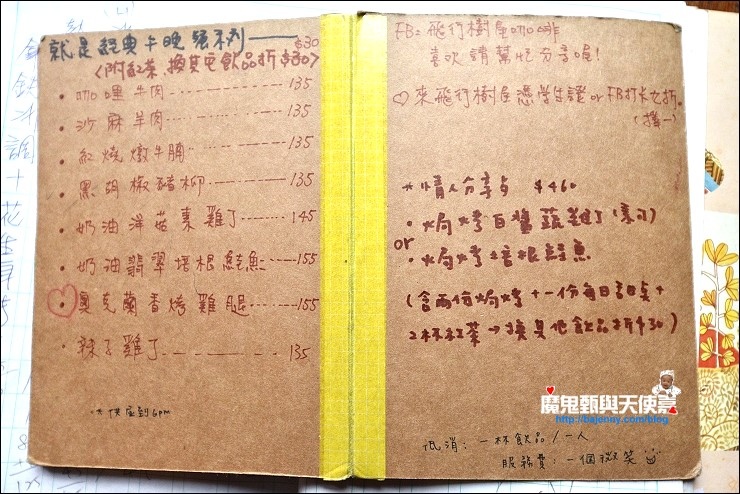 就是經典午晚餐系列
<附紅茶,換其它飲品折$30>
• 咖哩牛肉 135
• 沙麻羊肉 135
• 紅燒燉牛腩 135
• 黑胡椒豬柳 135
• 奶油洋菇棗雞丁 145
• 奶油翡翠培根鮭魚 155
• 奧克蘭香烤雞腿 155
• 辣子雞丁 135
*供應到6pm
FB:飛行樹屋咖啡
喜歡請幫忙分享喔!
♡來飛行樹屋憑學生證or FB打卡九折。
(擇一)
*情人分享 $460
• 焗烤白醬蔬雞丁
or
• 焗烤培根鮭魚
(含兩份焗烤+一份每日甜點+
2杯紅茶→換其他飲品折$30)
魔鬼甄與天使嘉
http://bajenny.com/blog
低消:一杯飲品/一人
服務費:一個微笑